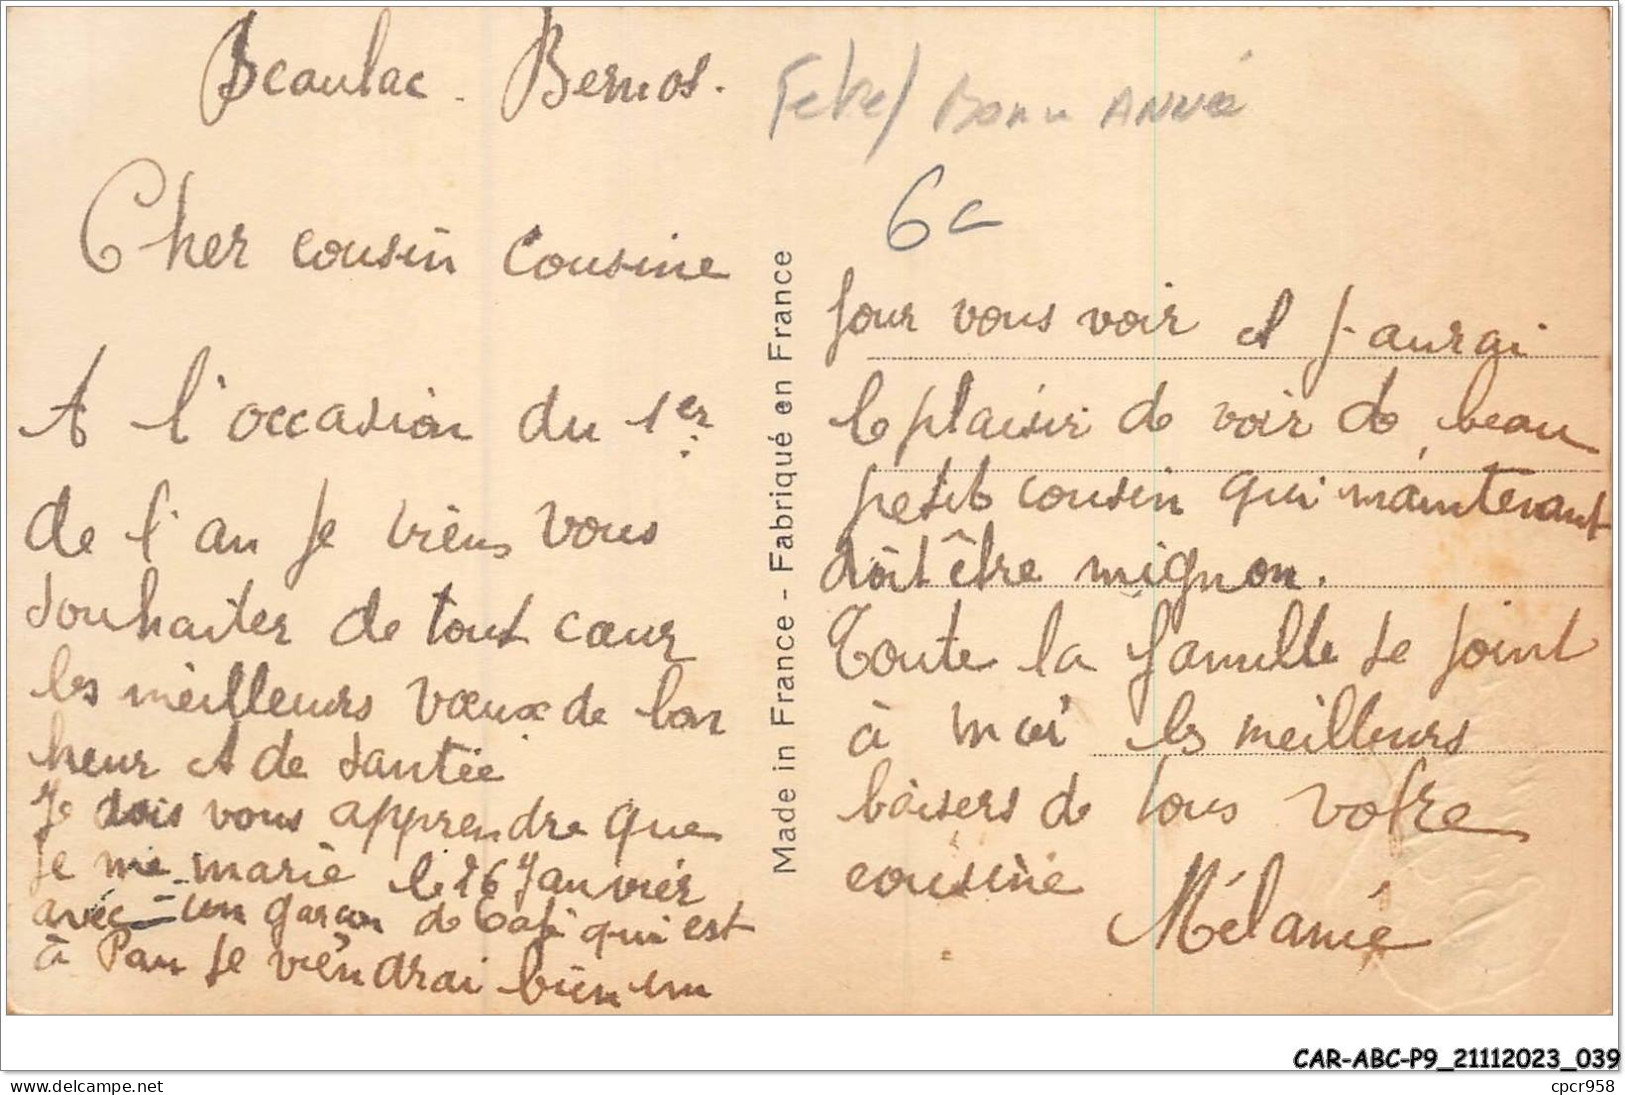 Beaulac - Bernos.
Cher cousin Cousine
A l'occasion du 1er
de l'an je viens vous
souhaiter de tout cœur
les meilleurs vœux de bon
heur et de santée
Je dois vous apprendre que
je me marie le 26 Janvier
avec un garçon de Café qui est
à Pau je viendrai bien un
Made in France - Fabriqué en France
Fete/ Bonn Année
6c
jour vous voir et j-aurai
le plaisir de voir de beau
petit cousin qui maintenant
doit être mignon.
Toute la famille se joint
à moi les meilleurs
baisers de tous votre
cousine
Mélanie
CAR-ABC-P9_21112023_039
www.delcampe.net
cpcr958